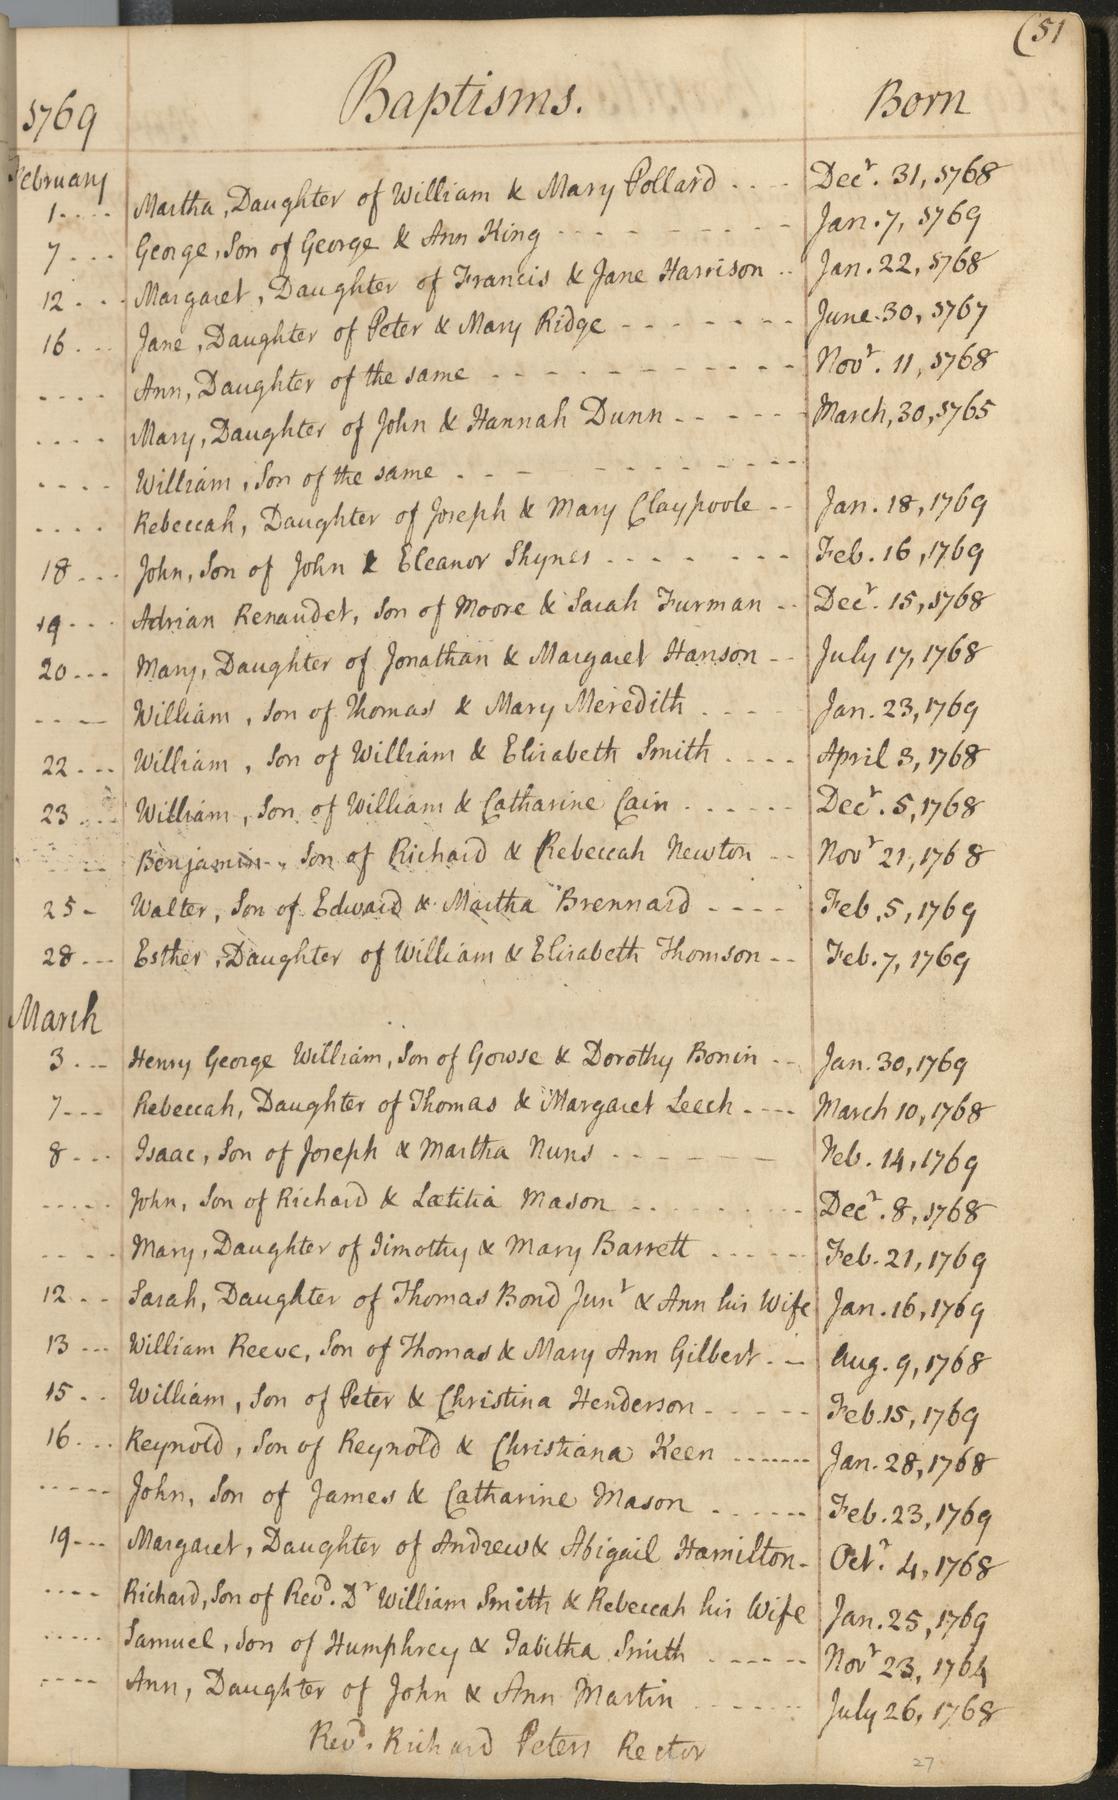 (51
1769 Baptisms. Born
February
1 .... Martha, Daughter of William & Mary Pollard .... Decr. 31, 1768
7 ... George, Son of George & Ann King --------- Jan. 7, 1769
12 ... Margaret, Daughter of Francis & Jane Harrison .. Jan. 22, 1768
16 ... Jane, Daughter of Peter & Mary Ridge ------- June 30, 1767
.... Ann, Daughter of the same ----------- Novr. 11, 1768
.... Mary, Daughter of John & Hannah Dunn ----- March, 30, 1765
.... William, Son of the same --- --------
.... Rebeccah, Daughter of Joseph & Mary Claypoole -- Jan. 18, 1769
18 ... John, Son of John & Eleanor Shynes .... --- Feb. 16, 1769
19 ... Adrian Renaudet, Son of Moore & Sarah Furman -- Decr. 15, 1768
20 ... Mary, Daughter of Jonathan & Margaret Hanson -- July 17, 1768
---- William, Son of Thomas & Mary Meredith .... Jan. 23, 1769
22 ... William, Son of William & Elisabeth Smith .... April 3, 1768
23 ... William, Son of William & Catharine Cain ...... Decr. 5, 1768
.... Benjamin, Son of Richard & Rebeccah Newton -- Novr 21, 1768
25 - Walter, Son of Edward & Martha Brennard ---- Feb. 5, 1769
28 ... Esther, Daughter of William & Elisabeth Thomson -- Feb. 7, 1769
March
3 ... Henry George William, Son of Gowse & Dorothy Bonin -- Jan. 30, 1769
7 --- Rebeccah, Daughter of Thomas & Margaret Leech ---- March 10, 1768
8 ... Isaac, Son of Joseph & Martha Nuns ------ Feb. 14, 1769
..... John, Son of Richard & Lætitia Mason ........ Decr. 8, 1768
.... Mary, Daughter of Timothy & Mary Barrett ..... Feb. 21, 1769
12 .. Sarah, Daughter of Thomas Bond Junr & Ann his Wife Jan. 16, 1769
13 ... William Reeve, Son of Thomas & Mary Ann Gilbert. - Aug. 9, 1768
15 .. William, Son of Peter & Christina Henderson ----- Feb. 15, 1769
16 ... Reynold, Son of Reynold & Christiana Keen ....... Jan. 28, 1768
..... John, Son of James & Catharine Mason ...... Feb. 23, 1769
19 ... Margaret, Daughter of Andrew & Abigail Hamilton - Octr. 4, 1768
.... Richard, Son of Revd. Dr William Smith & Rebeccah his Wife Jan. 25, 1769
..... Samuel, Son of Humphrey & Tabitha Smith ------ Novr 23, 1764
.... Ann, Daughter of John & Ann Martin ...... July 26, 1768
Revd. Richard Peters Rector
27